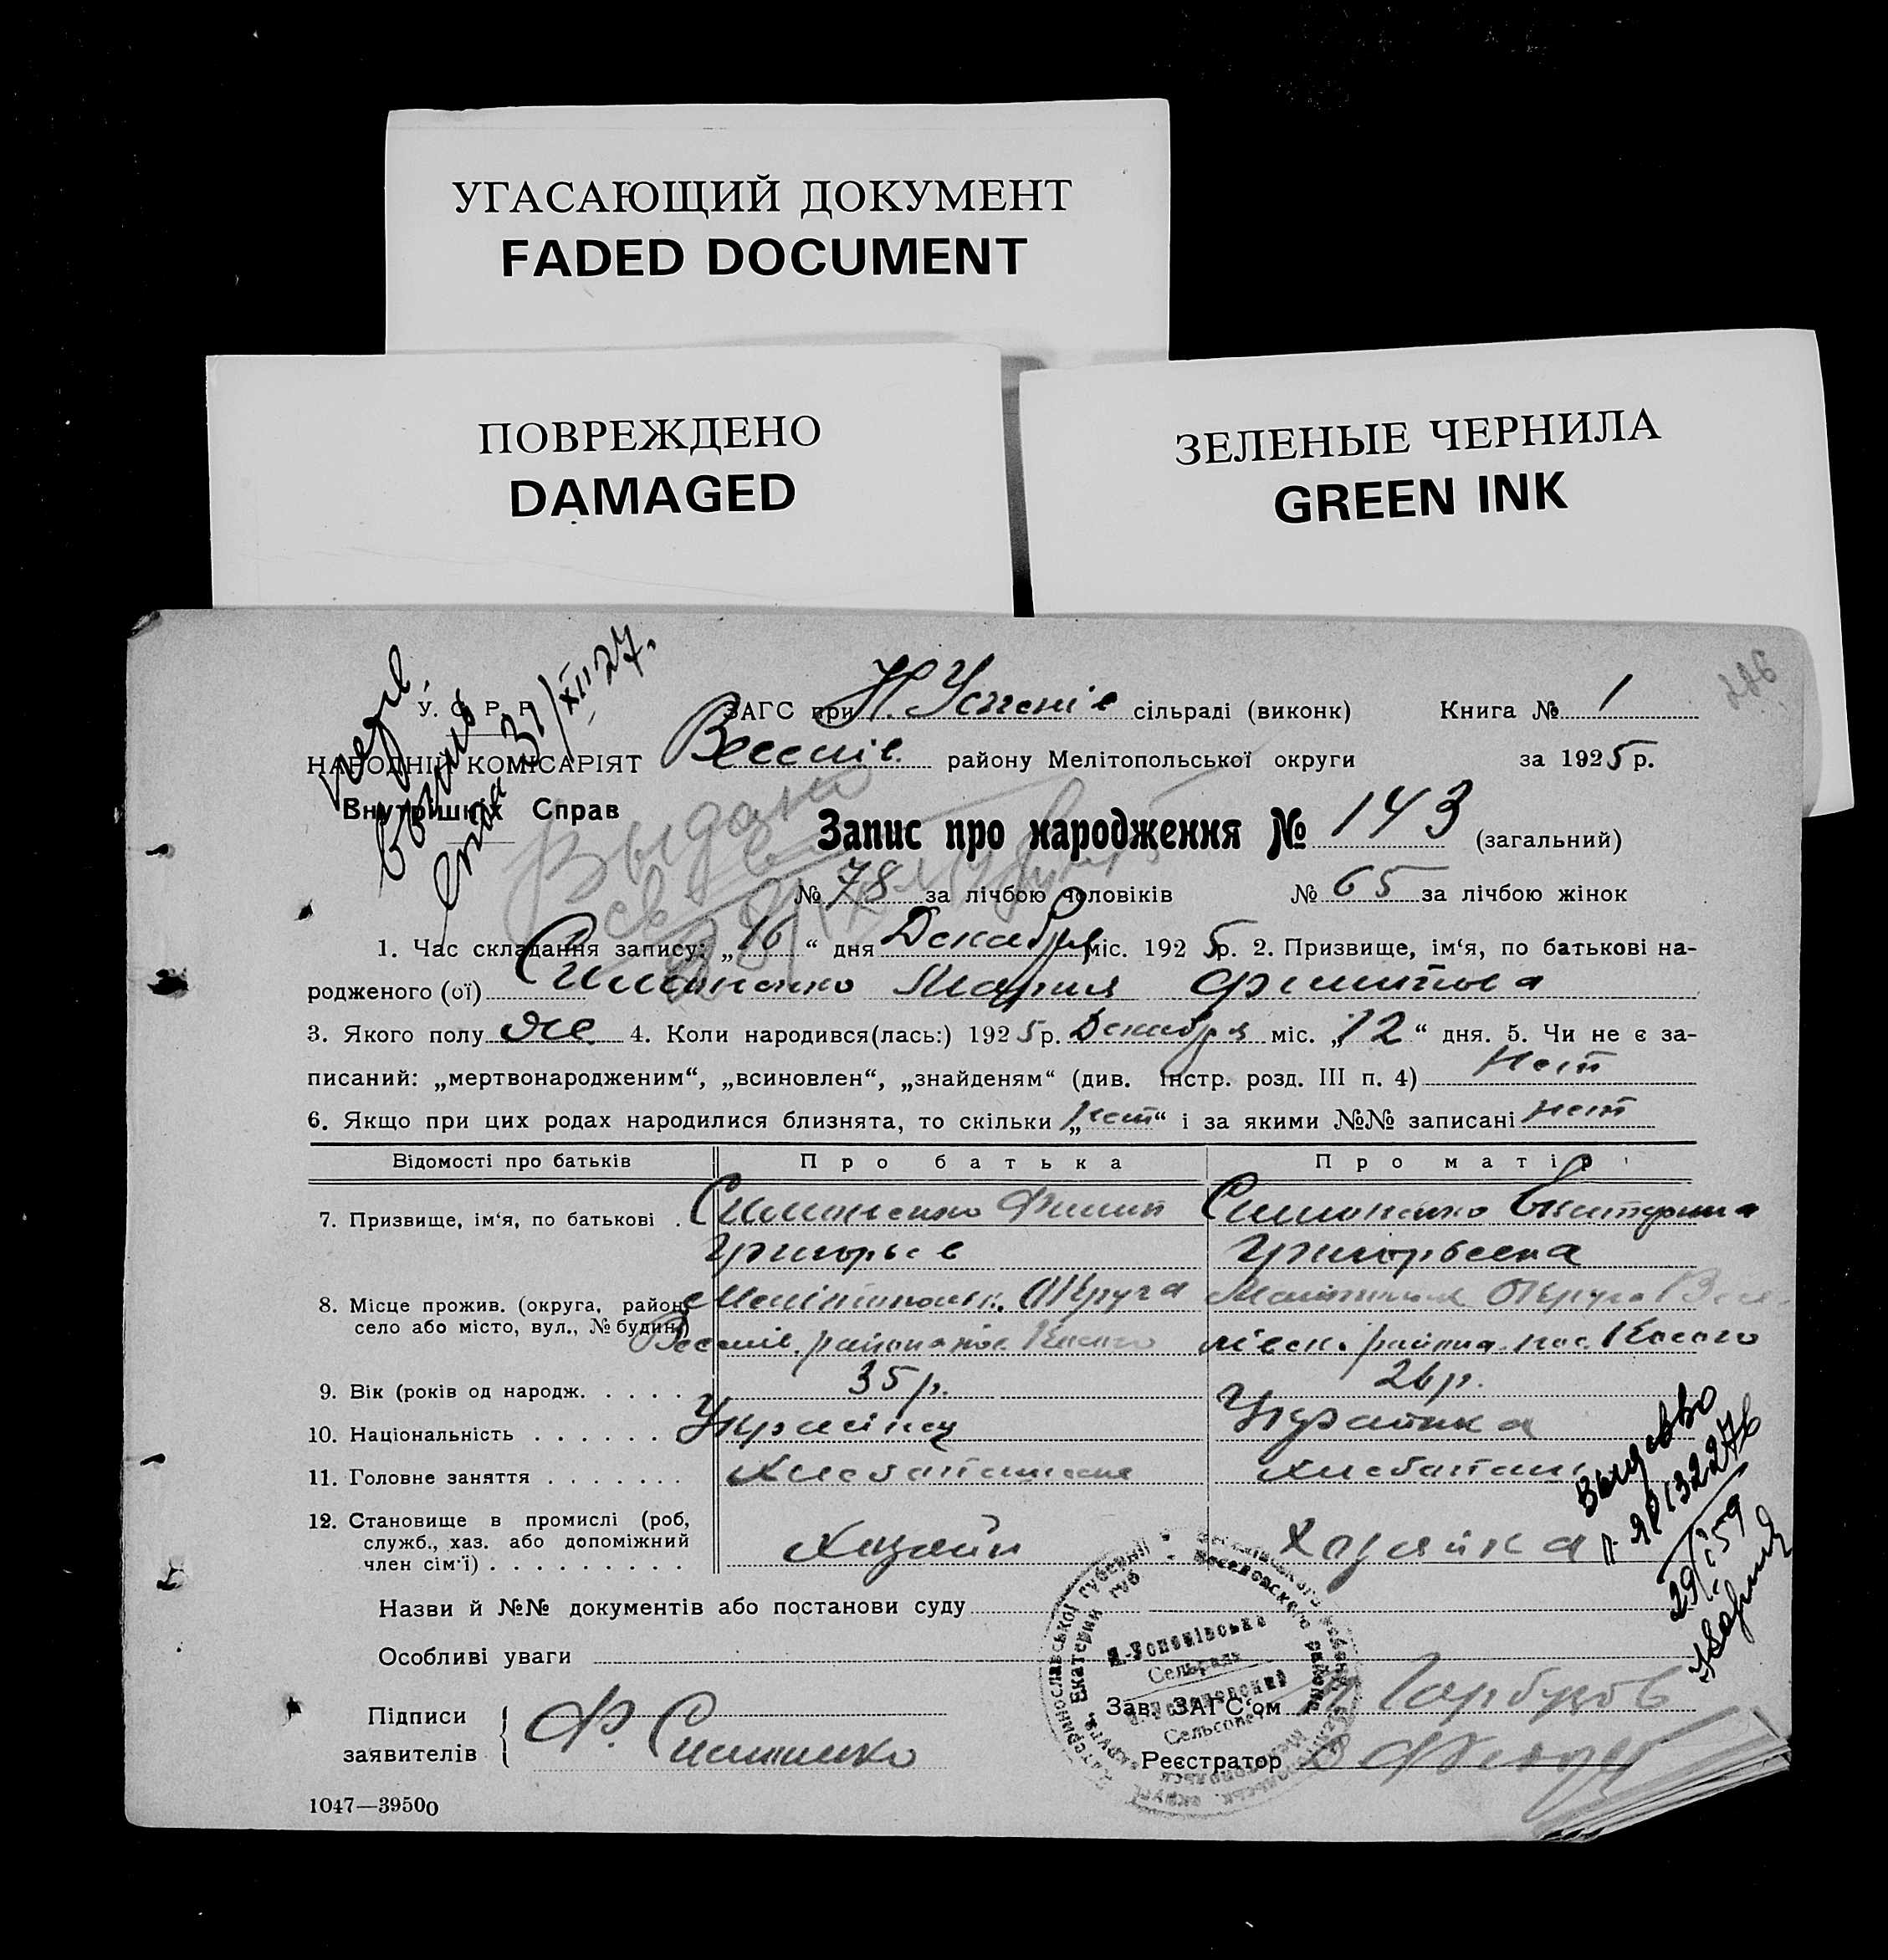 УГАСАЮЩИЙ ДОКУМЕНТ
FADED DOCUMENT
ПОВРЕЖДЕНО
DAMAGED
ЗЕЛЕНЫЕ ЧЕРНИЛА
GREEN INK
286
У. С. Р. Р.
ЗАГС при Н. Успенів сільраді (виконк) Книга № 1
НАРОДНІЙ КОМІСАРІЯТ Веселів. району Мелітопольської округи за 1925 р.
Внутрішніх Справ
31/XII 27.
Выдано
Запис про народження № 143 (загальний)
№ 78 за лічбою чоловіків № 65 за лічбою жінок
1. Час складання запису: „16“ дня Декабря міс. 1925 р. 2. Призвище, ім‘я, по батькові на-
родженого (ої) Симоненко Мария Филипова
3. Якого полу же. 4. Коли народився(лась:) 1925 р. Декабря міс. „12“ дня. 5. Чи не є за-
писаний: „мертвонародженим“, „всиновлен“, „знайденям“ (див. інстр. розд. III п. 4) Нет
6. Якщо при цих родах народилися близнята, то скільки „нет“ і за якими №№ записані нет
Відомості про батьків Про батька Про матір
7. Призвище, ім‘я, по батькові . Симоненко Филип Симоненко Екатерина
Григорьев Григорьевна
8. Місце прожив. (округа, район, Мелітопольск. Округа Округа Весе-
село або місто, вул., № будин.) Веселів. района пос. Косого лівск. района пос. Косого
9. Вік (років од народж. . . . . . 35 р. 26 р.
10. Національність . . . . . . . Українец Украинка
11. Головне заняття . . . . . . . Хлебопашество Хлебопаш.
12. Становище в промислі (роб,
служб., хаз. або допоміжний
член сім‘ї) . . . . . . . . . Хозяин Хозяйка
29/I 59
Назви й №№ документів або постанови суду
Особливі уваги
Н.-Успенівська
Сельрада
Сельсовет
Веселовского района
Підписи
заявителів Ф. Симоненко
Зав. ЗАГС‘ом Гарбузов
Реєстратор
1047—39500